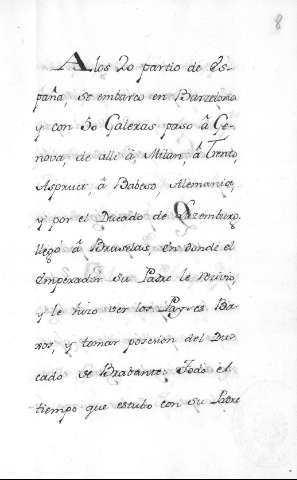 8
A los 20 partio de Es-
paña, se embarco en Barcelona
y con 50 Galeras paso â Ge-
nova, de alli â Milan, â Trento
Aspruct, â Babiera, Alemania,
y por el Ducado de Luzemburg
llegò â Bruselas, en donde el
Emperador su Padre le recivio,
y le hizo ver los Payses Ba-
xos, y tomar posesion del Du-
cado de Brabante: Todo el
tiempo que estubo con su Padre